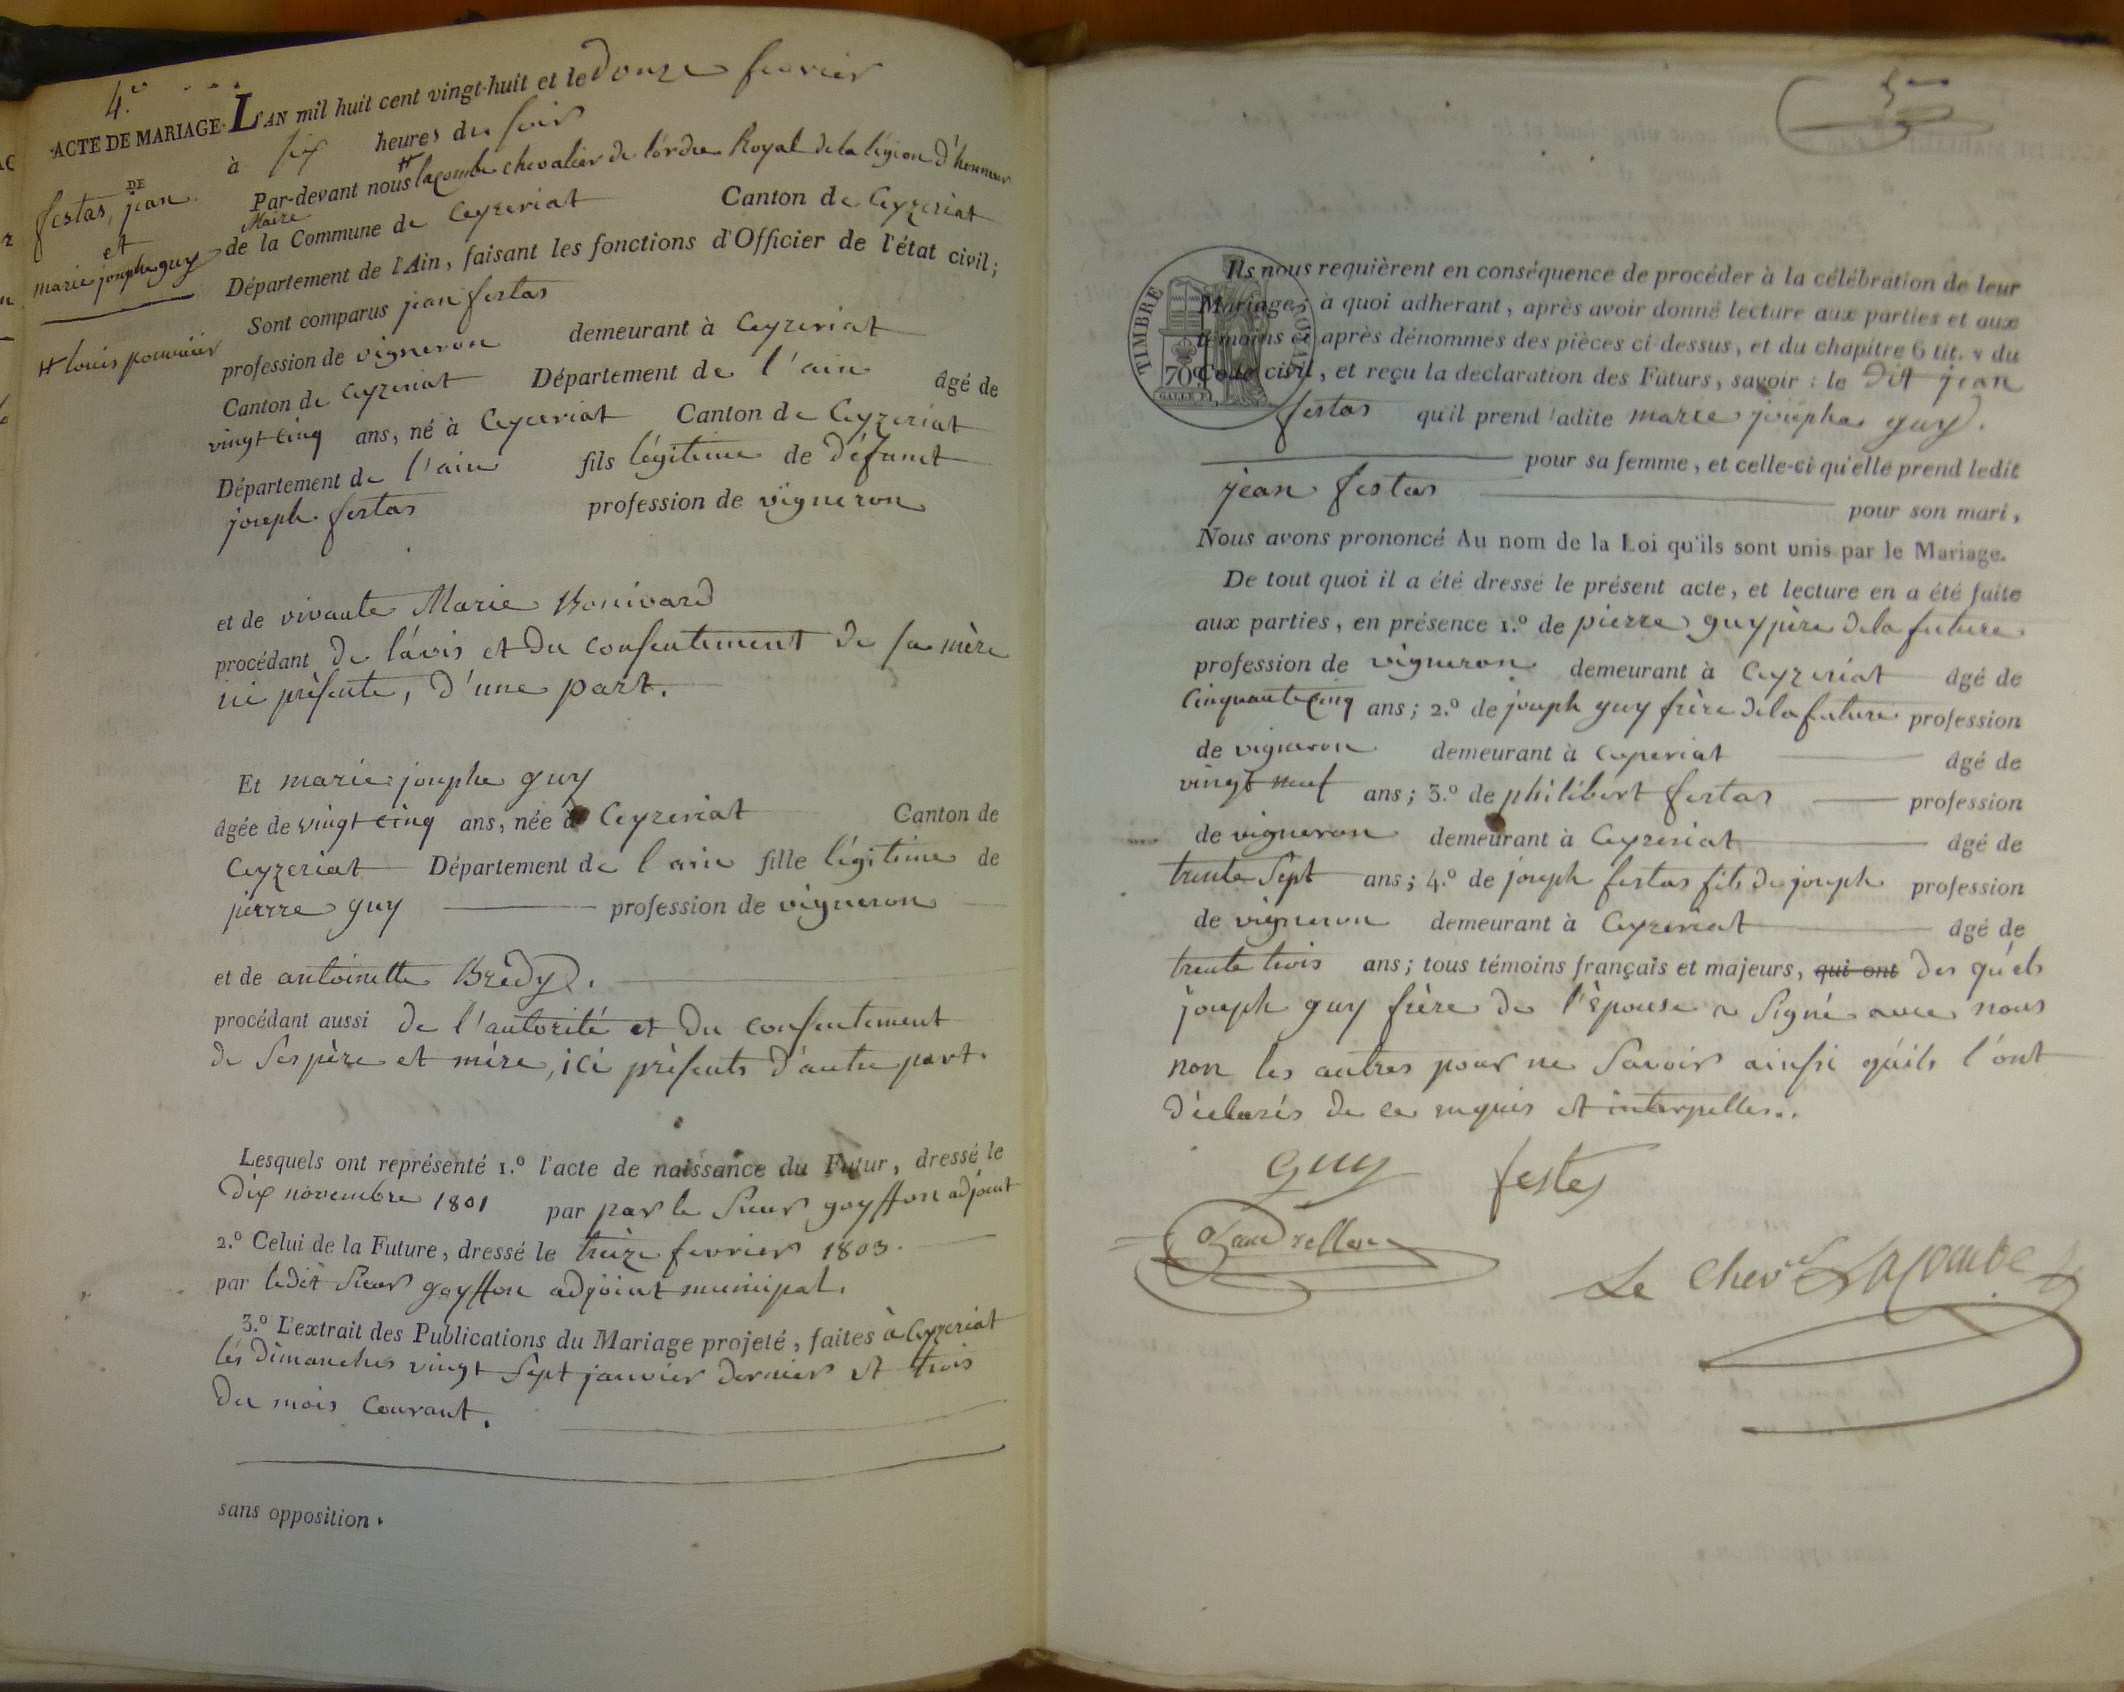 4.e
ACTE DE MARIAGE. L'AN mil huit cent vingt-huit et le Douze fevrier
à six heures du soir
DE
festas, jean
et
marie josephe guy
Par-devant nous # lacombe chevalier de l'ordre Royal de la légion d'honneur
Maire
de la Commune de Ceyzeriat Canton de Ceyzeriat
Département de l'Ain, faisant les fonctions d'Officier de l'état civil;
# louis
Sont comparus jean festas
profession de vigneron demeurant à Ceyzeriat
Canton de Ceyzeriat Département de l'ain âgé de
vingt cinq ans, né à Ceyzeriat Canton de Ceyzeriat
Département de l'ain fils légitime de défunct
joseph festas profession de vigneron
et de vivante Marie Bonivard
procédant de l'avis et du consentement de sa mère
ici présente, d'une part.
Et marie josephe guy
âgée de vingt cinq ans, née à Ceyzeriat Canton de
Ceyzeriat Département de l'ain fille légitime de
pierre guy profession de vigneron
et de antoinette Brédy.
procédant aussi de l'autorité et du consentement
de ses père et mère, ici présents d'autre part.
Lesquels ont représenté 1.º l'acte de naissance du Futur, dressé le
dix novembre 1801 par par le sieur goyffon adjoint
2.º Celui de la Future, dressé le treize fevrier 1803.
par ledit sieur goyffon adjoint municipal.
3.º L'extrait des Publications du Mariage projeté, faites à Ceyzeriat
les dimanches vingt sept janvier dernier et trois
du mois courant.
sans opposition.
TIMBRE ROYAL
70c
Ils nous requièrent en conséquence de procéder à la célébration de leur
Mariage; à quoi adherant, après avoir donné lecture aux parties et aux
témoins ci après dénommés des pièces ci dessus, et du chapitre 6 tit. v du
Code civil, et reçu la declaration des Futurs, savoir : le dit jean
festas qu'il prend ladite marie josephe guy.
pour sa femme, et celle-ci qu'elle prend ledit
jean festas pour son mari,
Nous avons prononcé Au nom de la Loi qu'ils sont unis par le Mariage.
De tout quoi il a été dressé le présent acte, et lecture en a été faite
aux parties, en présence 1.º de pierre guy père de la future
profession de vigneron demeurant à Ceyzeriat âgé de
cinquante cinq ans; 2.º de joseph guy frère de la future profession
de vigneron demeurant à Ceyzeriat âgé de
vingt neuf ans; 3.º de philibert festas profession
de vigneron demeurant à Ceyzeriat âgé de
trente sept ans; 4.º de joseph festas fils de joseph profession
de vigneron demeurant à Ceyzeriat âgé de
trente trois ans; tous témoins français et majeurs, qui ont des quels
joseph guy frère de l'épouse a signé avec nous
non les autres pour ne savoir ainsi qu'ils l'ont
déclarés de ce requis et interpellés..
guy festas
Le chev.er Lacombe